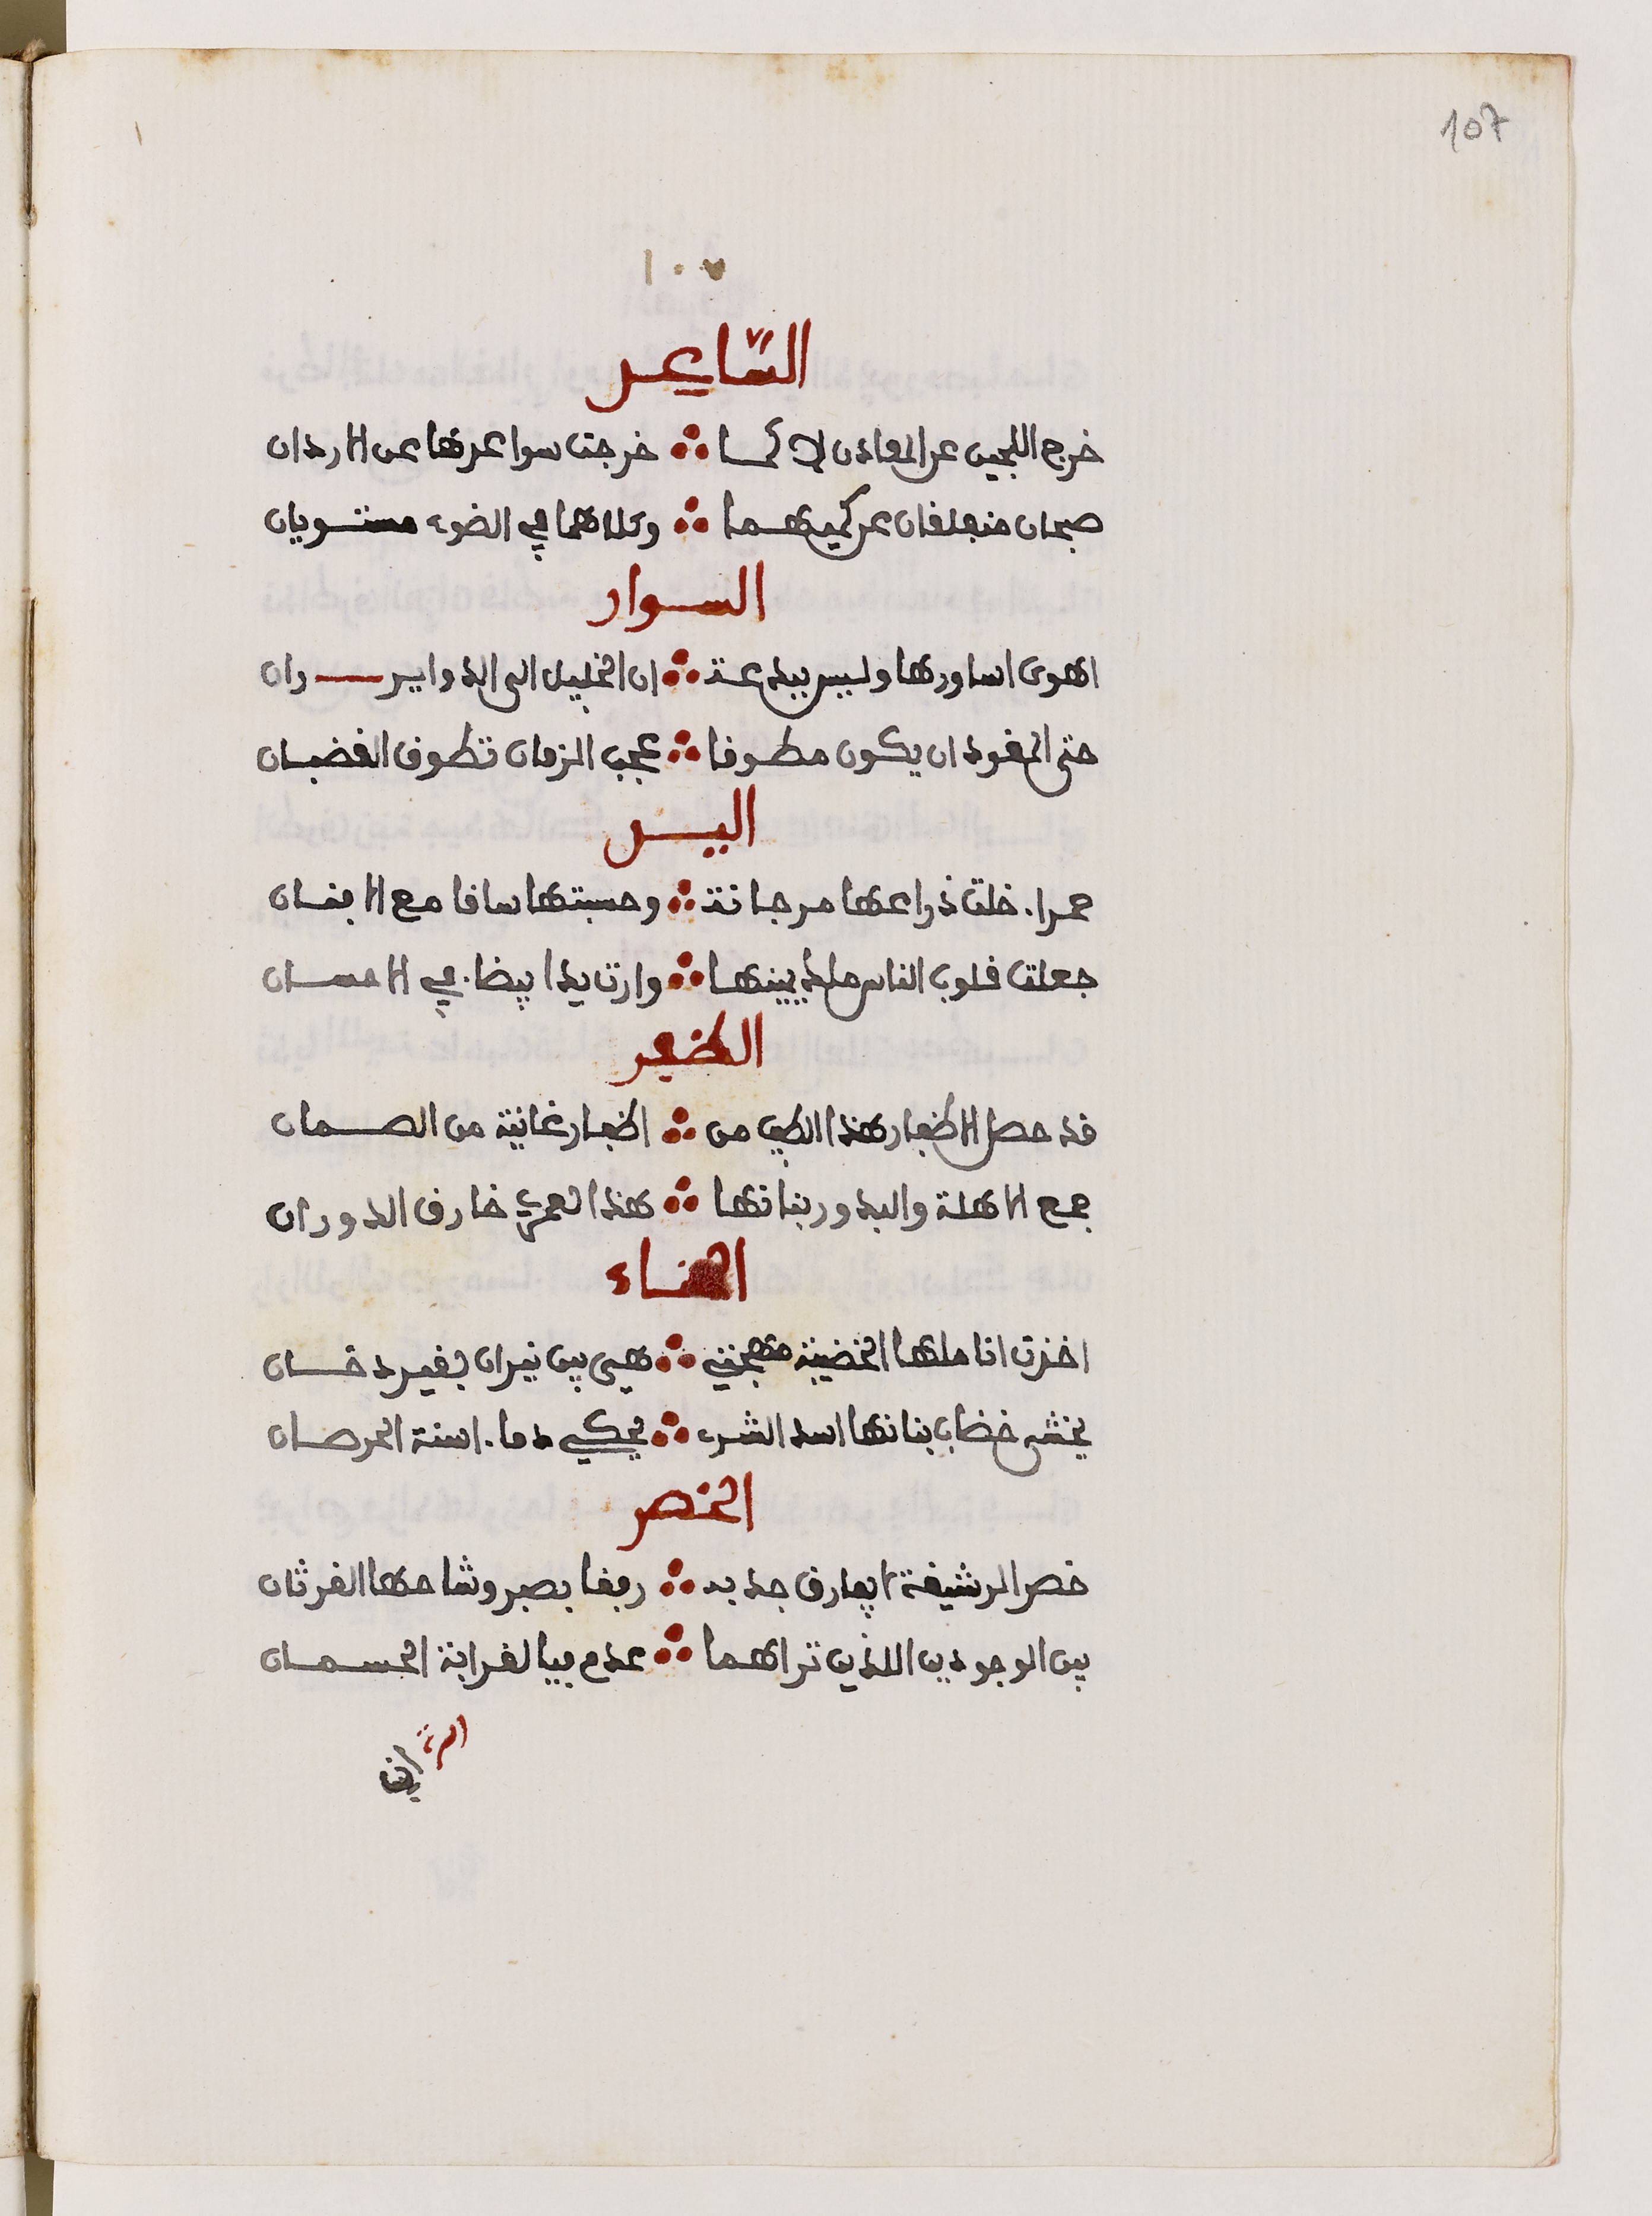 107
١٠٧
الساعد
خرج اللجين عن المعادن لا كما ∴ خرجت سواعدها عن الاردان
صبحان منبلغان عن كميهما ∴ وكلاهما في الضوء مستويان
السوار
اهوى اساورها وليس ببدعة ∴ ان الخليل الى الدواير ران
حتى المفود ان يكون مطوفا ∴ عجب الزمان تطوف الفضبان
اليد
حمراء خلت ذراعها مرجانة ∴ وحسبتها ساقا مع الافنان
جعلت قلوب الناس ملك يمينها ∴ وارت يدا بيضاء في الاحسان
الظفر
قد حصل الاظفار هذا الطيب من ∴ اظفار غانية من الصمان
جمع الاهلة والبدور بنانها ∴ هذا لعمري خارق الدوران
الحناء
اخذت اناملها الخضيبة مهجتي ∴ هي بين نيران بغير دخان
يخشى خضاب بنانها اسد الشرى ∴ يحكي دماء اسنة الخرصان
الخصر
خصر الرشيفة ابعارق جد بد ∴ رفقا بصبر وشاحها الغرثان
بين الوجودين اللذين تراهما ∴ عدم فيا لغرابة الحسمان